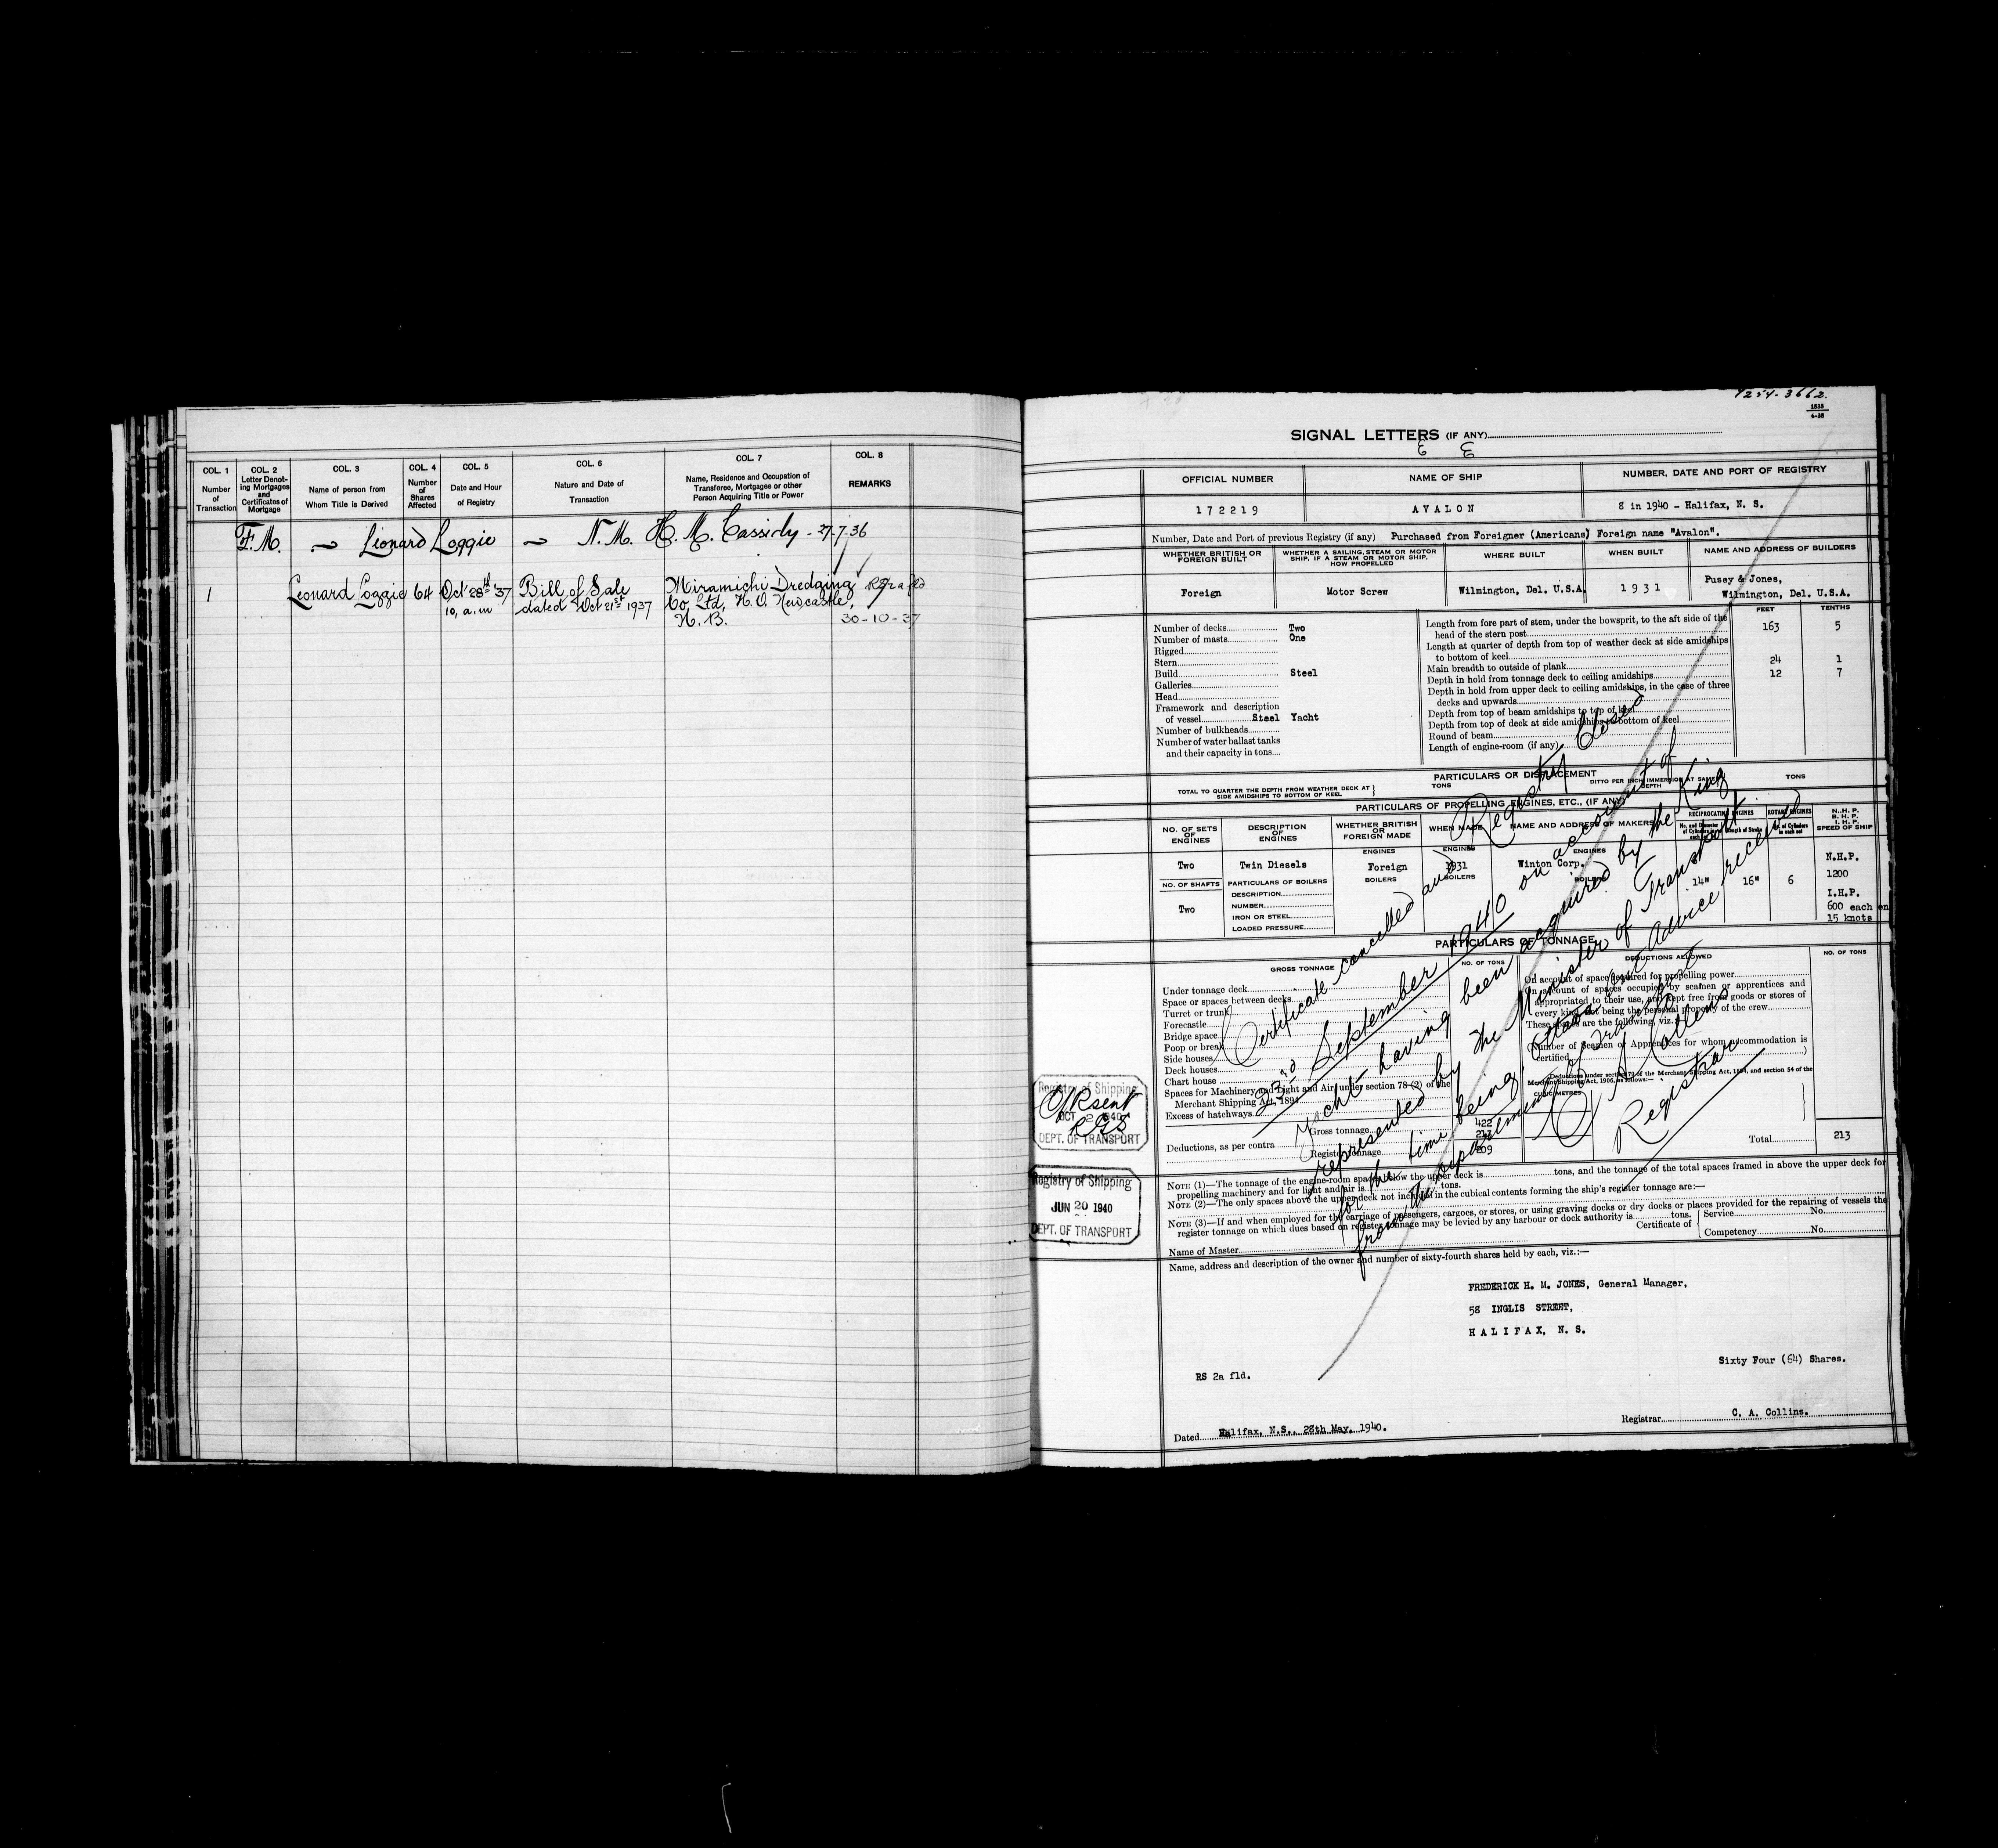 COL. 1 COL. 2 COL. 3 COL. 4 COL. 5 COL. 6 COL. 7 COL. 8
Number of Transaction
Letter Denoting Mortgages and Certificates of Mortgage
Name of person from Whom Title is Derived
Number of Shares Affected
Date and Hour of Registry
Nature and Date of Transaction
Name, Residence and Occupation of Transferee, Mortgagee or other Person Acquiring Title or Power
REMARKS
F.M. Lionard Loggie N.M. H.M. Cassidy - 27-7-36
1 Leonard Loggie 64 Oct 28th '37 Bill of Sale Miramichi Dredging
10, a.m dated Oct 21st 1937 Co Ltd, H.O. Newcastle,
N.B. 30-10-37
1535
4-38
SIGNAL LETTERS (IF ANY)
E E
OFFICIAL NUMBER NAME OF SHIP NUMBER, DATE AND PORT OF REGISTRY
172219 AVALON 8 in 1940 - Halifax, N. S.
Number, Date and Port of previous Registry (if any) Purchased from Foreigner (Americans) Foreign name "Avalon".
WHETHER BRITISH OR FOREIGN BUILT
WHETHER A SAILING, STEAM OR MOTOR SHIP, IF A STEAM OR MOTOR SHIP, HOW PROPELLED
WHERE BUILT WHEN BUILT NAME AND ADDRESS OF BUILDERS
Foreign Motor Screw Wilmington, Del. U.S.A. 1931 Pusey & Jones,
Wilmington, Del. U.S.A.
FEET TENTHS
Number of decks Two
Number of masts One
Rigged
Stern
Build Steel
Galleries
Head
Framework and description
of vessel Steel Yacht
Number of bulkheads
Number of water ballast tanks
and their capacity in tons
Length from fore part of stem, under the bowsprit, to the aft side of the
head of the stern post 163 5
Length at quarter of depth from top of weather deck at side amidships
to bottom of keel
Main breadth to outside of plank 24 1
Depth in hold from tonnage deck to ceiling amidships 12 7
Depth in hold from upper deck to ceiling amidships, in the case of three
decks and upwards
Depth from top of beam amidships to top of keel
Depth from top of deck at side amidships to bottom of keel
Round of beam
Length of engine-room (if any)
PARTICULARS OF DISPLACEMENT
TOTAL TO QUARTER THE DEPTH FROM WEATHER DECK AT SIDE AMIDSHIPS TO BOTTOM OF KEEL TONS DITTO PER INCH IMMERSION AT SAME DEPTH TONS
PARTICULARS OF PROPELLING ENGINES, ETC., (IF ANY)
NO. OF SETS OF ENGINES
DESCRIPTION OF ENGINES
WHETHER BRITISH OR FOREIGN MADE
WHEN MADE
NAME AND ADDRESS OF MAKERS
RECIPROCATING ENGINES
ROTARY ENGINES
N.H.P.
B.H.P.
I.H.P.
SPEED OF SHIP
ENGINES ENGINES ENGINES
Two Twin Diesels Foreign 1931 Winton Corp. N.H.P.
NO. OF SHAFTS PARTICULARS OF BOILERS BOILERS BOILERS BOILERS 14" 16" 6 1200
DESCRIPTION I.H.P.
Two NUMBER 600 each en
IRON OR STEEL 15 knots
LOADED PRESSURE
PARTICULARS OF TONNAGE
GROSS TONNAGE NO. OF TONS DEDUCTIONS ALLOWED NO. OF TONS
Under tonnage deck
Space or spaces between decks
Turret or trunk
Forecastle
Bridge space
Poop or break
Side houses
Deck houses
Chart house
Spaces for Machinery and Light and Air, under section 78 (2) of the
Merchant Shipping Act, 1894
Excess of hatchways
Gross tonnage 422
Deductions, as per contra 213
Register tonnage 209
On account of space required for propelling power
On account of spaces occupied by seamen or apprentices and
appropriated to their use, and kept free from goods or stores of
every kind, not being the personal property of the crew
These spaces are the following, viz.:
(Number of Seamen or Apprentices for whom accommodation is
certified )
Deductions under section 79 of the Merchant Shipping Act, 1894, and section 54 of the
Merchant Shipping Act, 1906, as follows:—
CUBIC METRES
Total 213
Certificate cancelled and Registry Closed
23rd September 1940 on account of
Yacht having been acquired by the King
represented by The Minister of Transport
for the time being. Advice received
from the Department of Transport
Ottawa
C A Collins
Registrar
Registry of Shipping
C/R sent
OCT 2 1940
DEPT. OF TRANSPORT
Registry of Shipping
JUN 20 1940
DEPT. OF TRANSPORT
NOTE (1)—The tonnage of the engine-room spaces below the upper deck is tons, and the tonnage of the total spaces framed in above the upper deck for
propelling machinery and for light and air is tons.
NOTE (2)—The only spaces above the upper deck not included in the cubical contents forming the ship's register tonnage are:—
NOTE (3)—If and when employed for the carriage of passengers, cargoes, or stores, or using graving docks or dry docks or places provided for the repairing of vessels the
register tonnage on which dues based on register tonnage may be levied by any harbour or dock authority is tons.
Name of Master Certificate of Service No.
Competency No.
Name, address and description of the owner and number of sixty-fourth shares held by each, viz.:—
FREDERICK H. M. JONES, General Manager,
58 INGLIS STREET,
HALIFAX, N. S.
Sixty Four (64) Shares.
RS 2a fld.
Dated Halifax, N.S., 28th May, 1940. Registrar C. A. Collins.